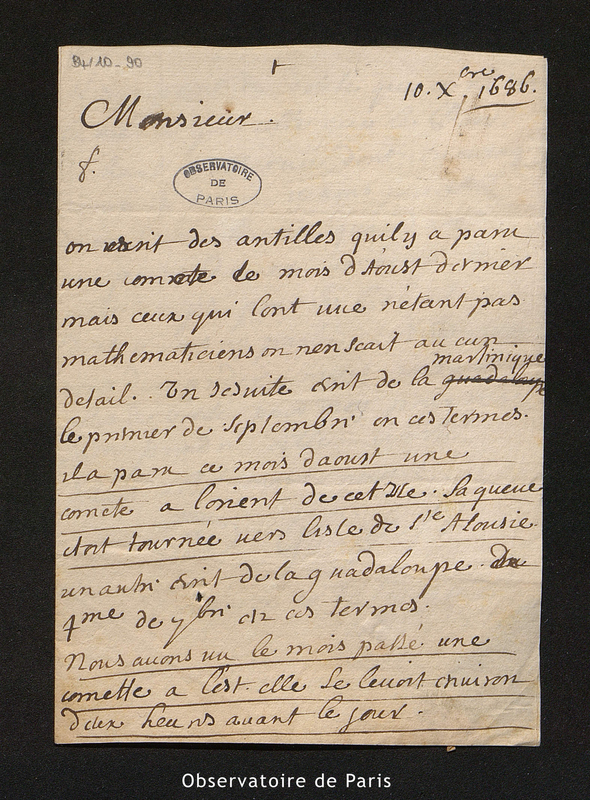 B4/10-90
10. Xbre. 1686.
Monsieur.
f.
OBSERVATOIRE
DE
PARIS
on escrit des antilles quil y a paru
une comete le mois d'Aoust dernier
mais ceux qui l'ont vue n'étant pas
mathematiciens on n'en scait aucun
martinique
detail. Un Jesuite écrit de la guadaloupe
le premier de Septembre en ces termes.
il a paru ce mois d'aoust une
comete a l'orient de cet Isle. Sa queue
etoit tournée vers l'isle de Ste Alousie.
un autre écrit de la guadaloupe. du
4me de 7bre en ces termes.
Nous avons vu le mois passé une
comette a l'est. elle se levoit environ
deux heures avant le jour.
Observatoire de Paris